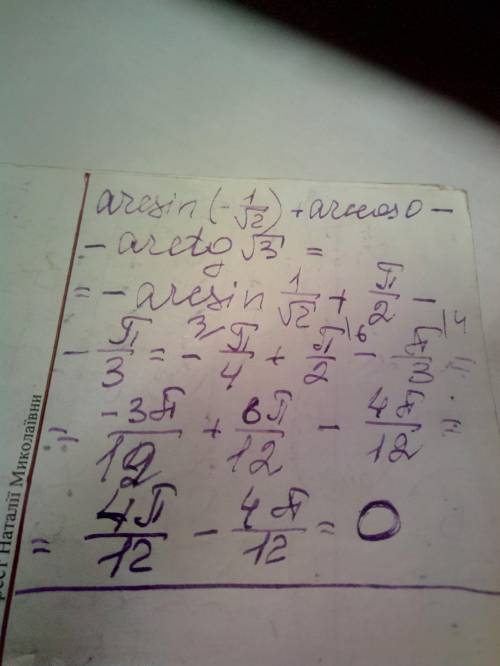 arcsin (-1/√2) + arccos 0 -
- arctg √3 =
= - arcsin 1/√2 + π/2 -
- π/3 = - π/4 \3 + π/2 \6 - π/3 \4 =
= -3π/12 + 6π/12 - 4π/12 =
= 4π/12 - 4π/12 = 0
Наталії Миколаївни